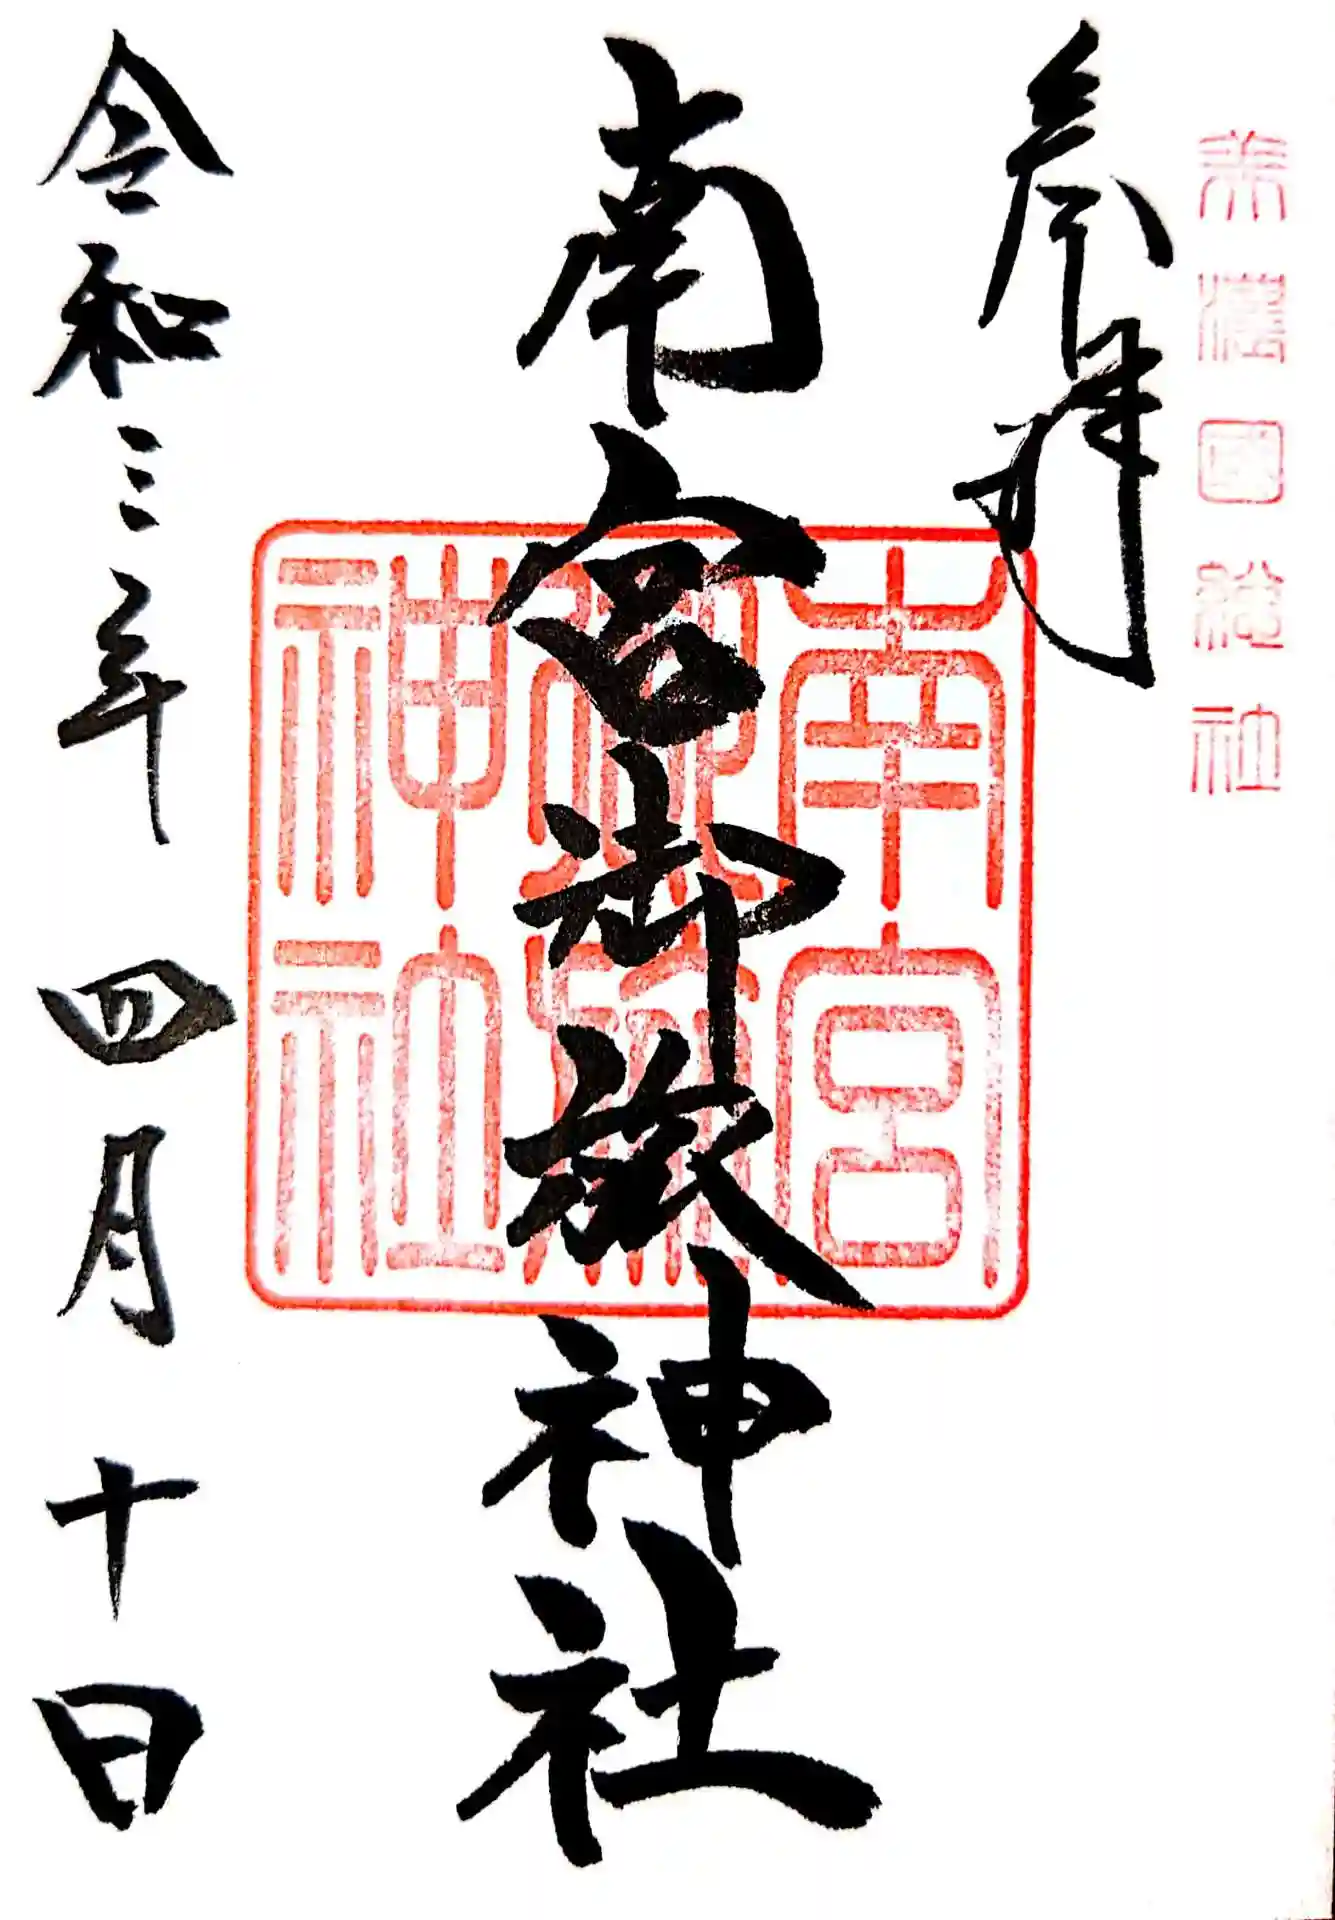 美濃國総社
参拝
南宮御旅神社
南宮
御旅
神社
令和三年四月十日